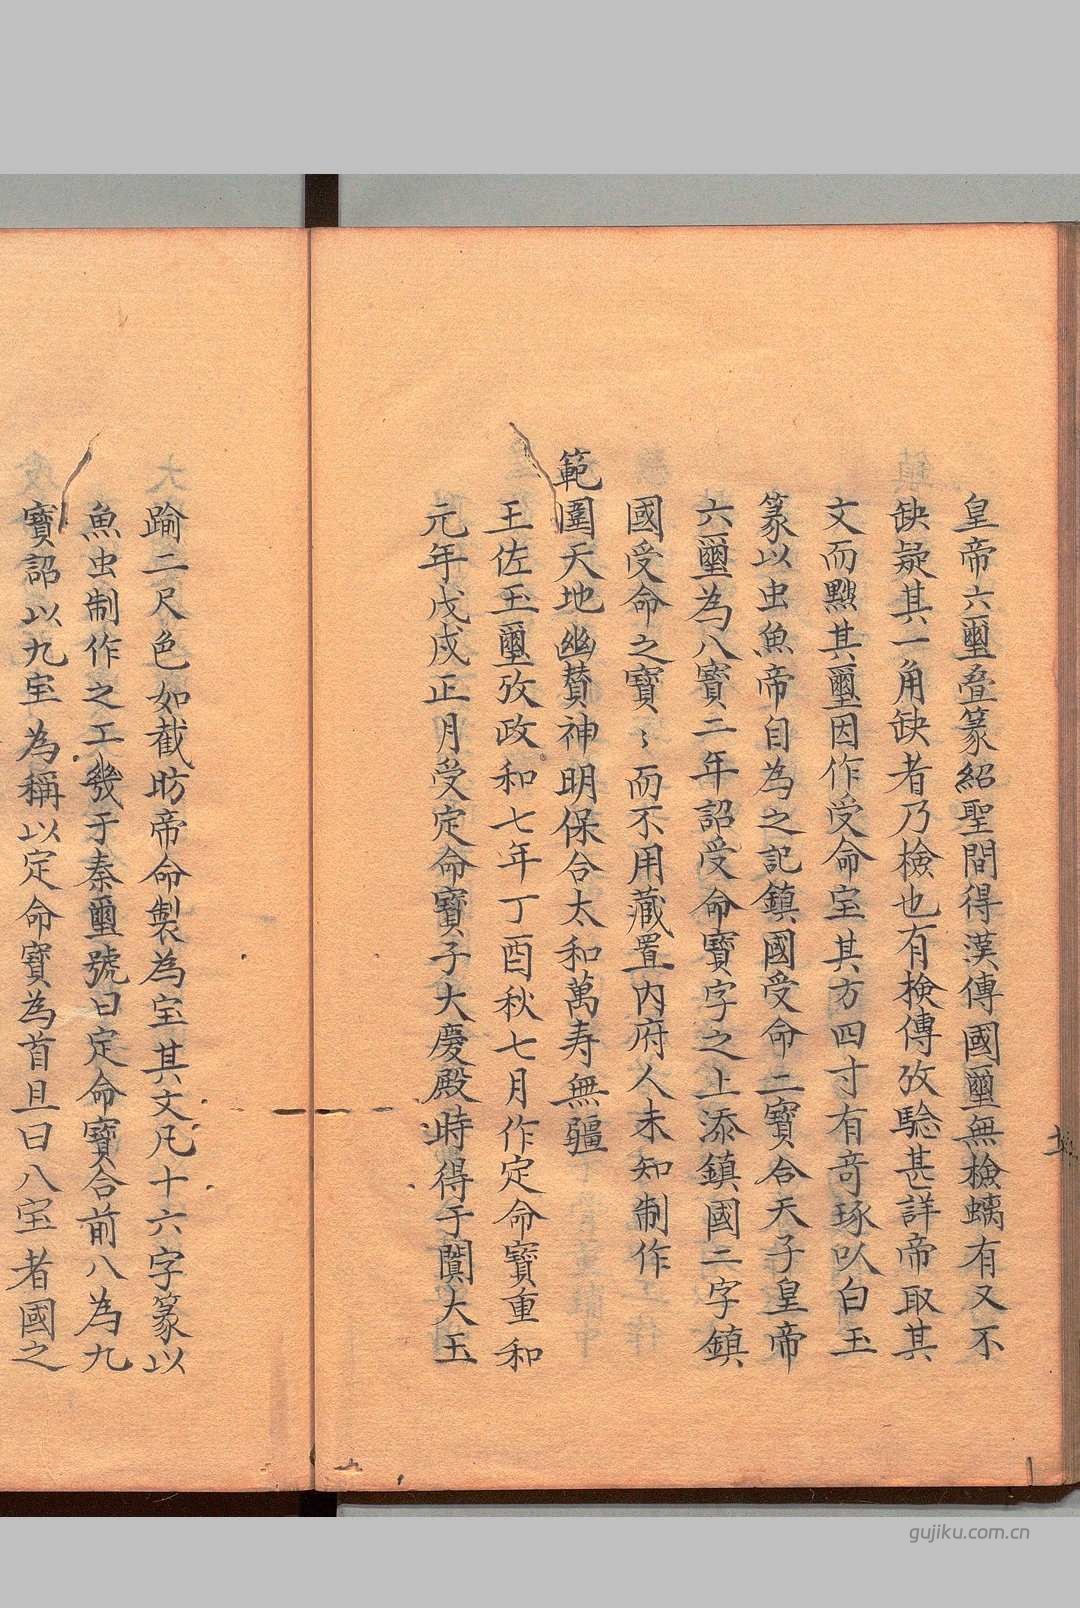 皇帝六璽叠篆紹聖間得漢傳國璽無檢螭有又不
缺疑其一角缺者乃檢也有検傳攷驗甚詳帝取其
文而黜其璽因作受命宝其方四寸有奇琢以白玉
篆以虫魚帝自為之記鎮國受命二寶合天子皇帝
六璽為八寶二年詔受命寶字之上添鎮國二字鎮
國受命之寶〻而不用藏置内府人未知制作
範圍天地幽賛神明保合太和萬寿無疆
王佐玉璽攷政和七年丁酉秋七月作定命寶重和
元年戊戌正月受定命寶于大慶殿時得于闐大玉
踰二尺色如截肪帝命製為宝其文凡十六字篆以
魚虫制作之工幾于秦璽號曰定命寶合前八為九
寶詔以九宝為稱以定命寶為首且曰八宝者國之
gujiku.com.cn